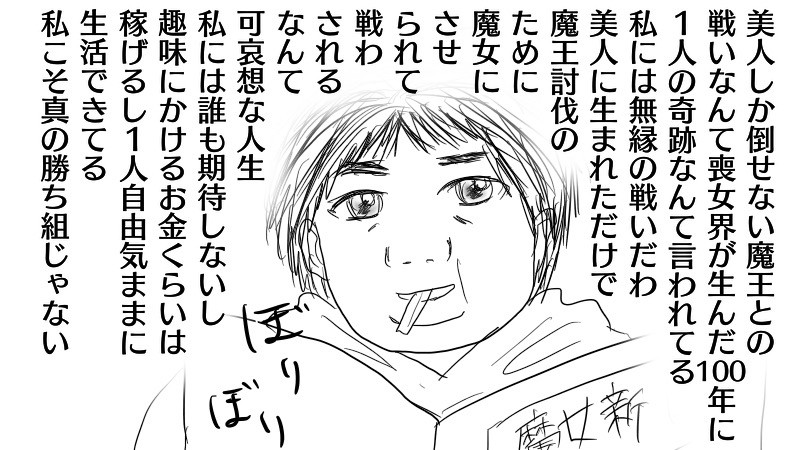 美人しか倒せない魔王との
戦いなんて喪女界が生んだ100年に
1人の奇跡なんて言われてる
私には無縁の戦いだわ
美人に生まれただけで
魔王討伐の
ために
魔女に
させ
られて
戦わ
される
なんて
可哀想な人生
私には誰も期待しないし
趣味にかけるお金くらいは
稼げるし1人自由気ままに
生活できてる
私こそ真の勝ち組じゃない
ぼり
ぼり
魔女新